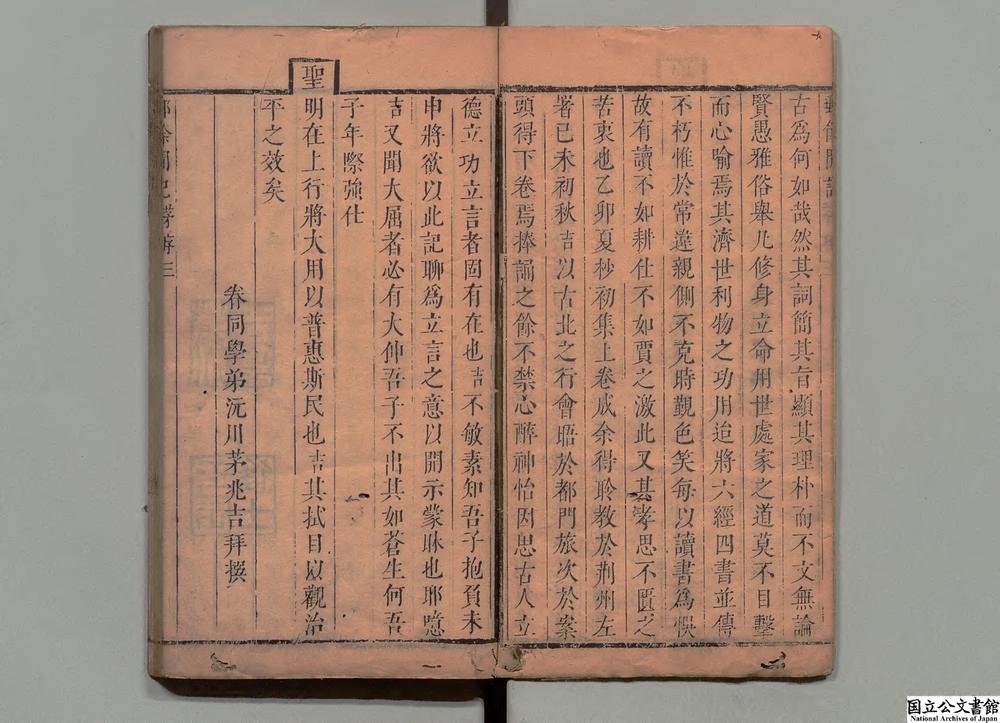 古爲何如哉然其詞簡其旨顯其理朴而不文無論
賢愚雅俗舉凡修身立命用世處家之道莫不目擊
而心喻焉其濟世利物之功用迨將六經四書並傳
不朽惟於常違親側不克時覲色笑每以讀書爲悞
故有讀不如耕仕不如賈之激此又其孝思不匱之
苦衷也乙卯夏杪初集上卷成余得聆教於荆州左
署己未初秋吉以古北之行會晤於都門旅次於案
頭得下卷焉捧誦之餘不禁心醉神怡因思古人立
德立功立言者固有在也吉不敏素知吾子抱負未
申將欲以此記聊爲立言之意以開示蒙昧也耶噫
吉又聞大屈者必有大伸吾子不出其如蒼生何吾
子年際強仕
聖
明在上行將大用以普惠斯民也吉其拭目以觀治
平之效矣
眷同學弟沅川茅兆吉拜撰
國立公文書館
National Archives of Japan